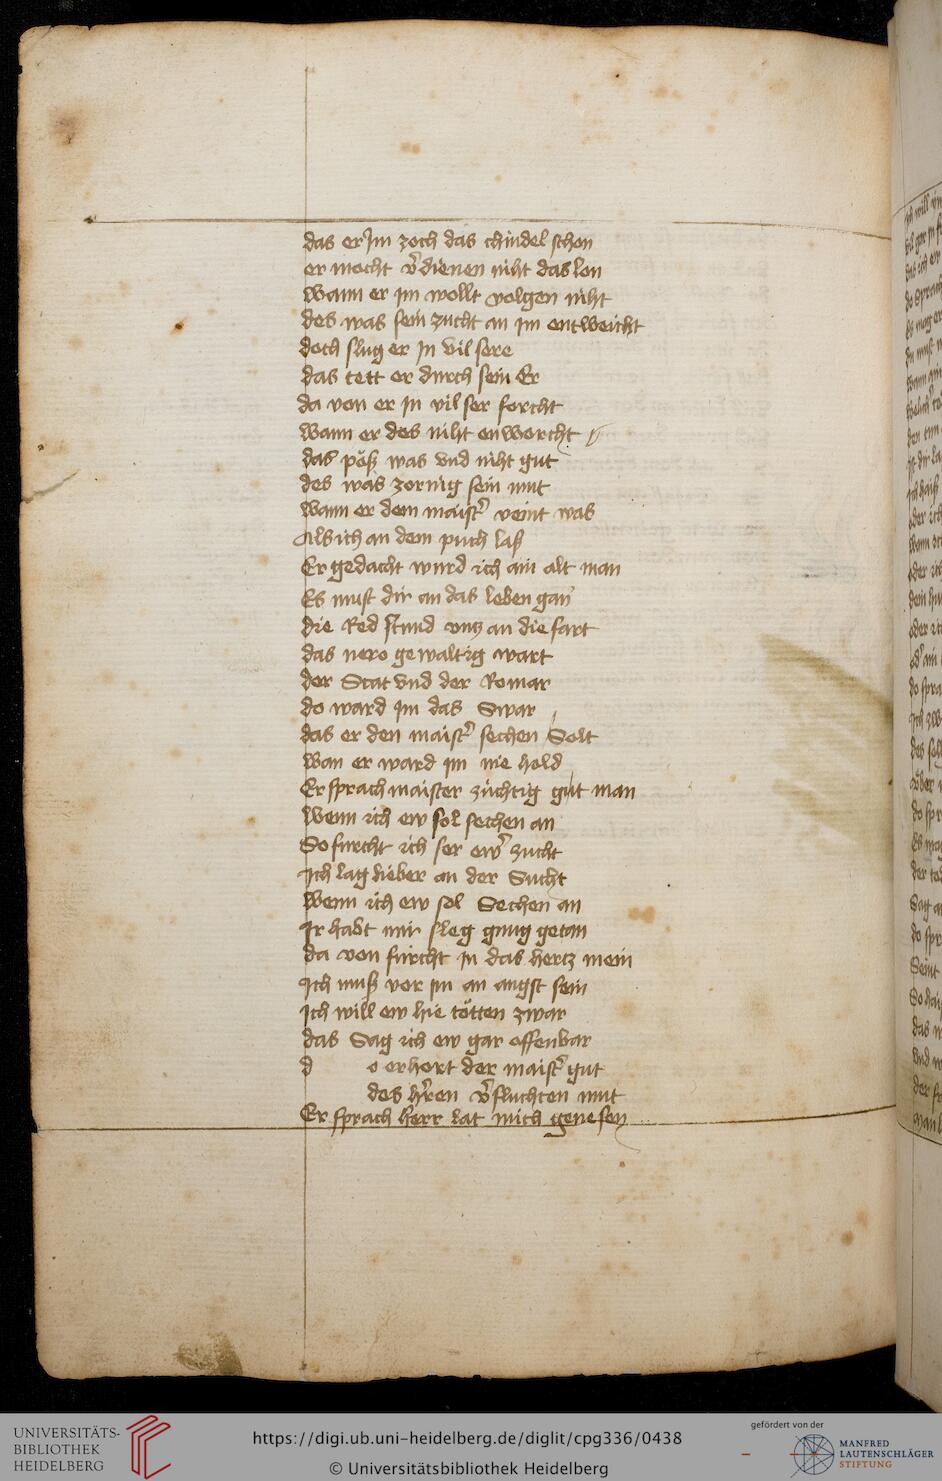 das er Im zoch das chindel schon
er mocht v̄dienen niht das lon
wann er im wollt volgen niht
des was sein zucht an im entweicht
doch slug er In vil sere
das tett er durch sein Er
da von er In vil ser forcht
wann er des niht enworcht
das pöß was vnd niht gut
des was zornig sein mut
wann er dem maist̄ veint was
Als ich an dem puch laß
Er gedacht wurd ich ain alt man
Es must dir an das leben gan
die Red stund vntz an die fart
das nero gewaltig wart
der Stat vnd der Romar
do ward Im das Swar
das er den maist̄ sechen Solt
wan er ward im nie hold
Er sprach maister züchtig gut man
wenn ich ew sol sechen an
So furcht ich ser ew̄ zucht
Ich lag lieber an der Sucht
wenn ich ew sol Sechen an
Ir habt mir sleg gnug getan
da von fürcht in das hertz mein
Ich muß vor im an angst sein
Ich will ew hie tötten zwar
das Sag ich ew gar offenbar
d o erhort der maist̄ gut
des h̄ren v̄fluchten mut
Er sprach herr lat mich genesen
UNIVERSITÄTS-
BIBLIOTHEK
HEIDELBERG
https://digi.ub.uni-heidelberg.de/diglit/cpg336/0438
© Universitätsbibliothek Heidelberg
gefördert von der
MANFRED
LAUTENSCHLÄGER
STIFTUNG